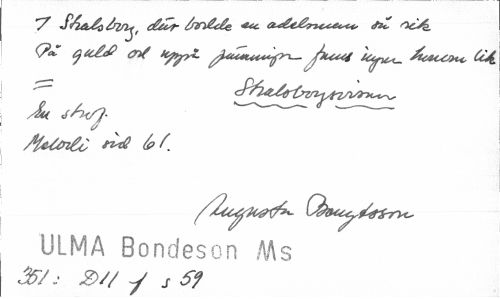 I Stralsborg, där bodde en adelsman så rik
På guld och uppå penningar fanns ingen honom lik
=
Stralsborgsvisan
En strof.
Melodi sid 61.
Augusta Bengtsson
ULMA Bondeson Ms
351: D11 f s 59